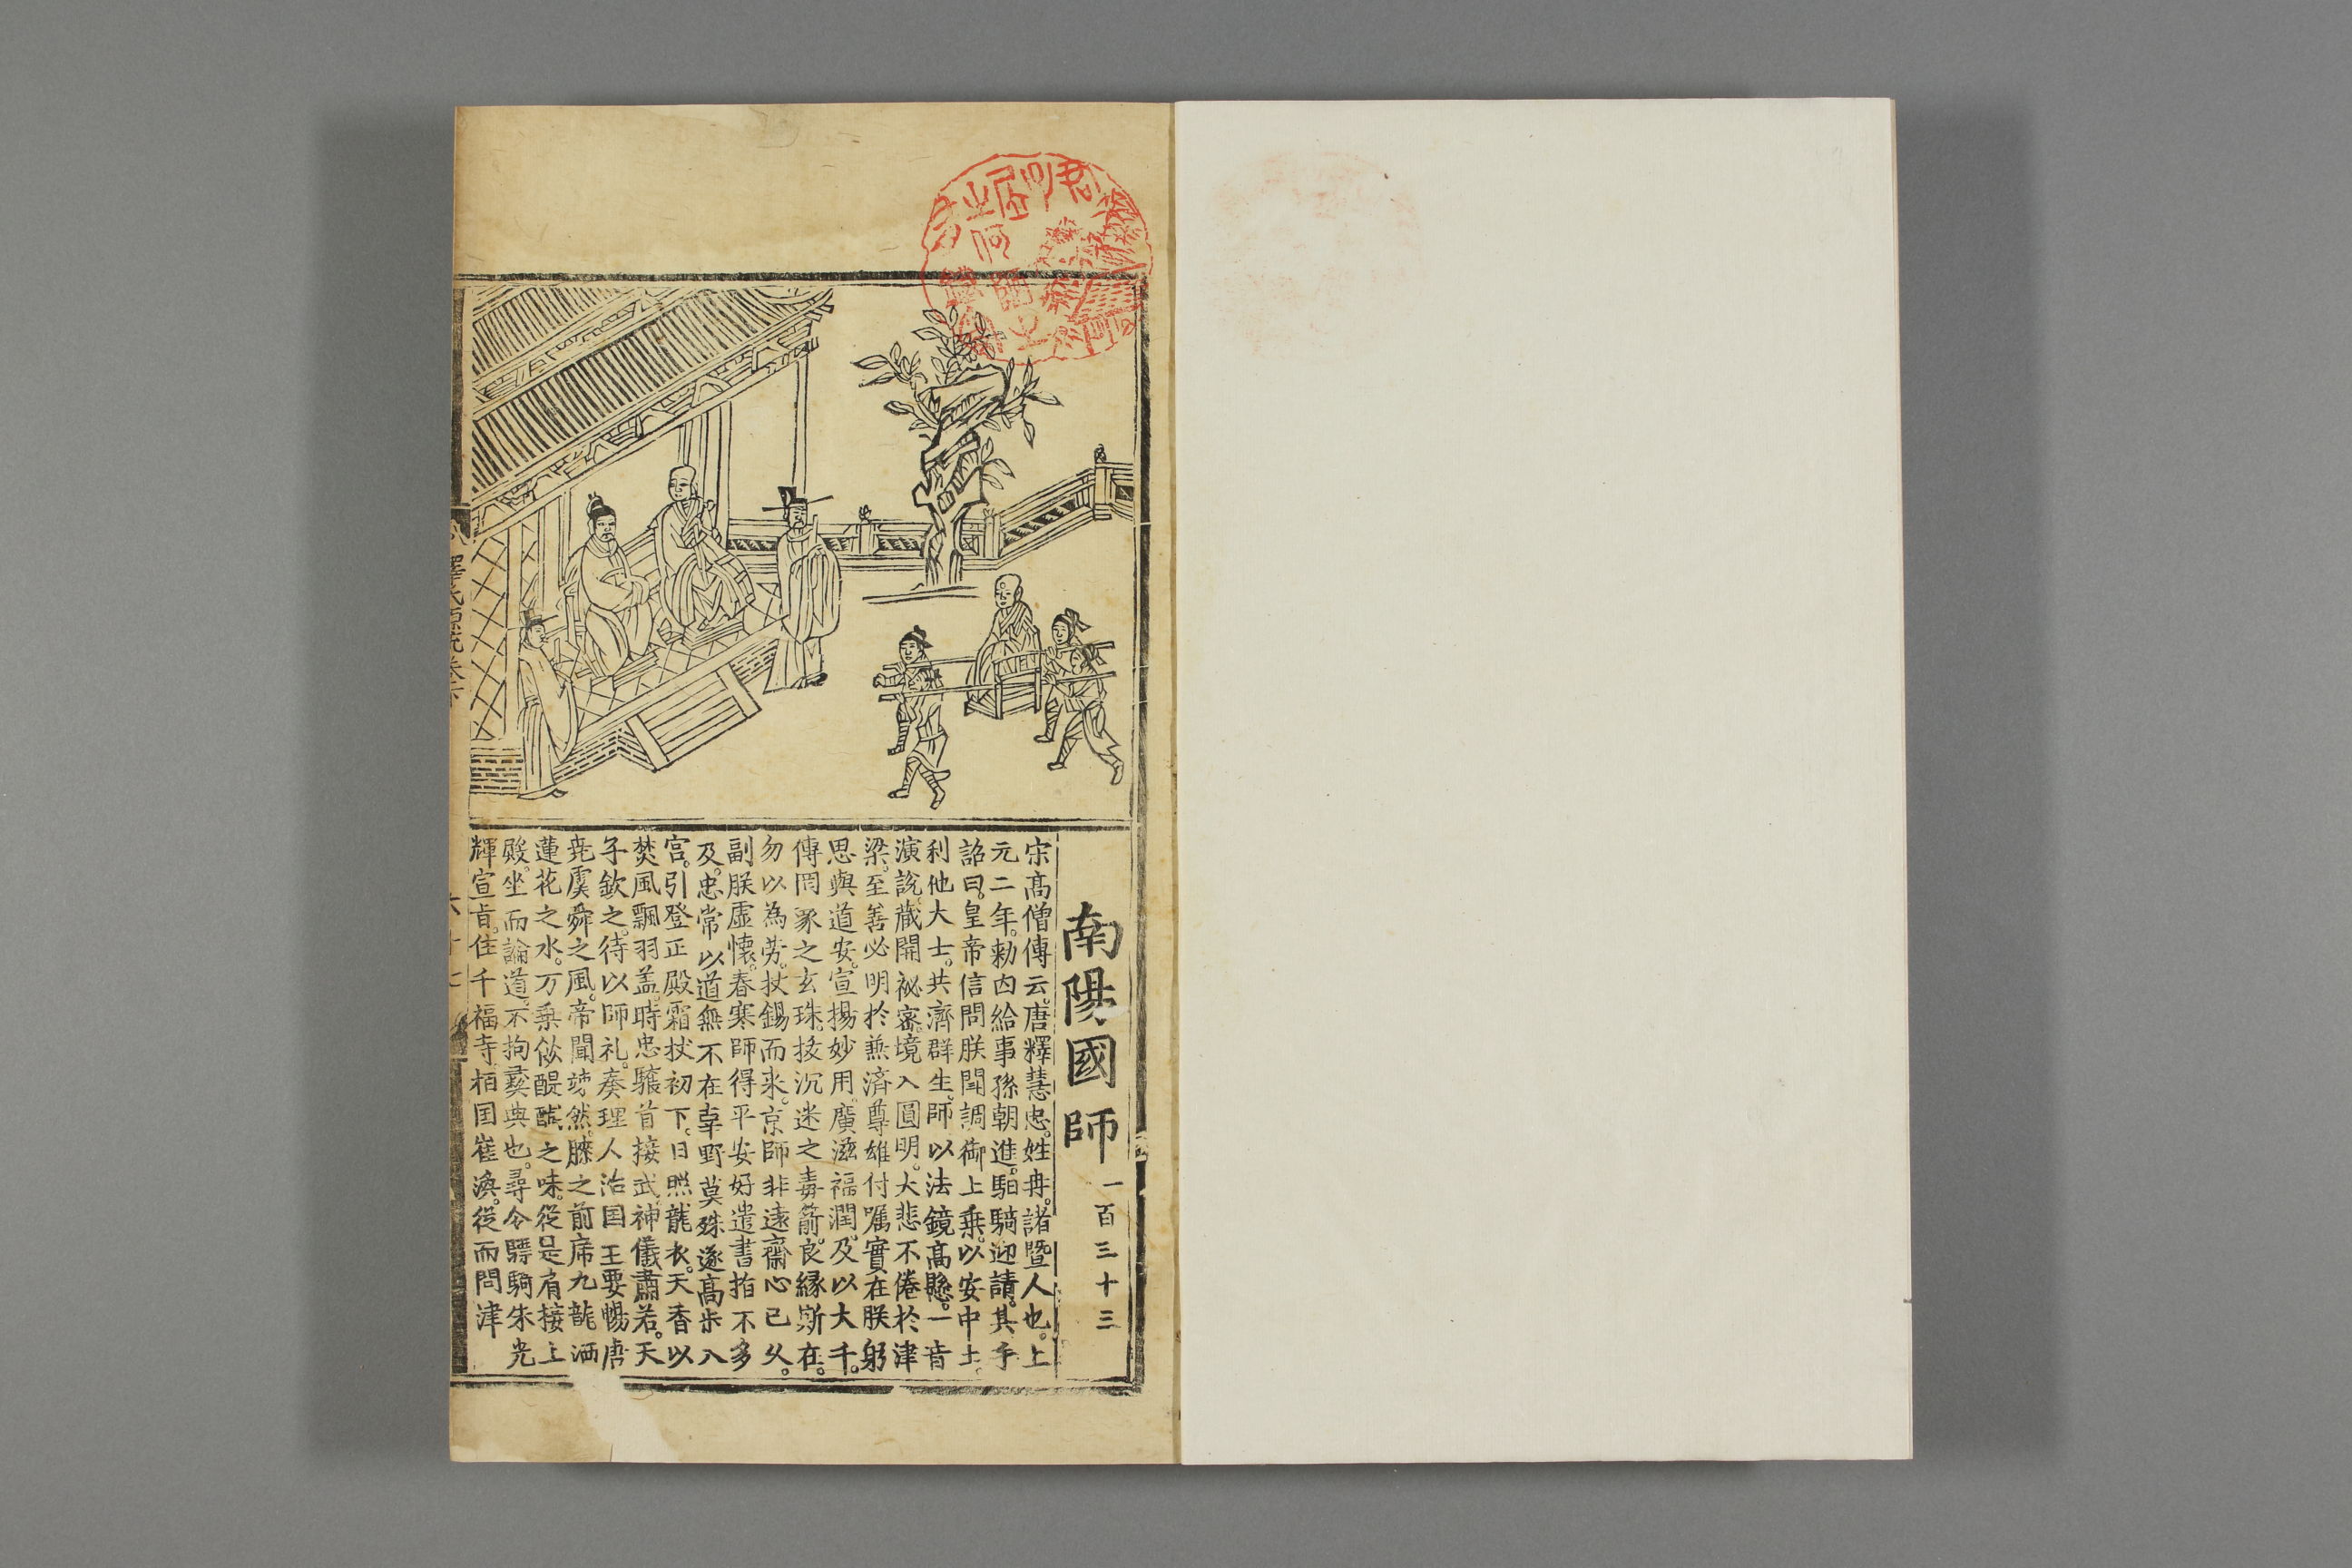 南陽國師 一百三十三
宋高僧傳云。唐釋慧忠。姓冉。諸暨人也。上
元二年。勅内給事孫朝進。馹騎迎請。其手
詔曰。皇帝信問朕聞調御上乗。以安中土。
利他大士。共濟群生。師以法鏡高懸。一音
演說。蔵開祕密。境入圓明。大悲不倦於津
梁。至善必明於兼済尊雄付嘱實在朕躬
思與道安。宣揚妙用。廣滋福潤。及以大千。
傳罔象之玄珠。抜沉迷之毒箭。良縁斯在。
勿以為勞。杖錫而来。京師非遠齋心已久。
副朕虛懷。春寒師得平安好遣書指不多
及。忠常以道無不在。辜野莫殊遂高歩入
宮。引登正殿霜扙初下。日照龍衣。天香以
焚風飄羽盖。時忠驤首接武。神儀肅若。天
子欽之。待以師礼。奏理人治国王要暢唐
尭虞舜之風。帝聞竦然。膝之前席九龍洒
蓮花之水。万乗飲醍醐之味。從是肩接上
殿。坐而論道。不拘彛典也。尋令驃騎朱光
輝宣旨。住千福寺栢国崔渙。從而問津
釋氏源流卷